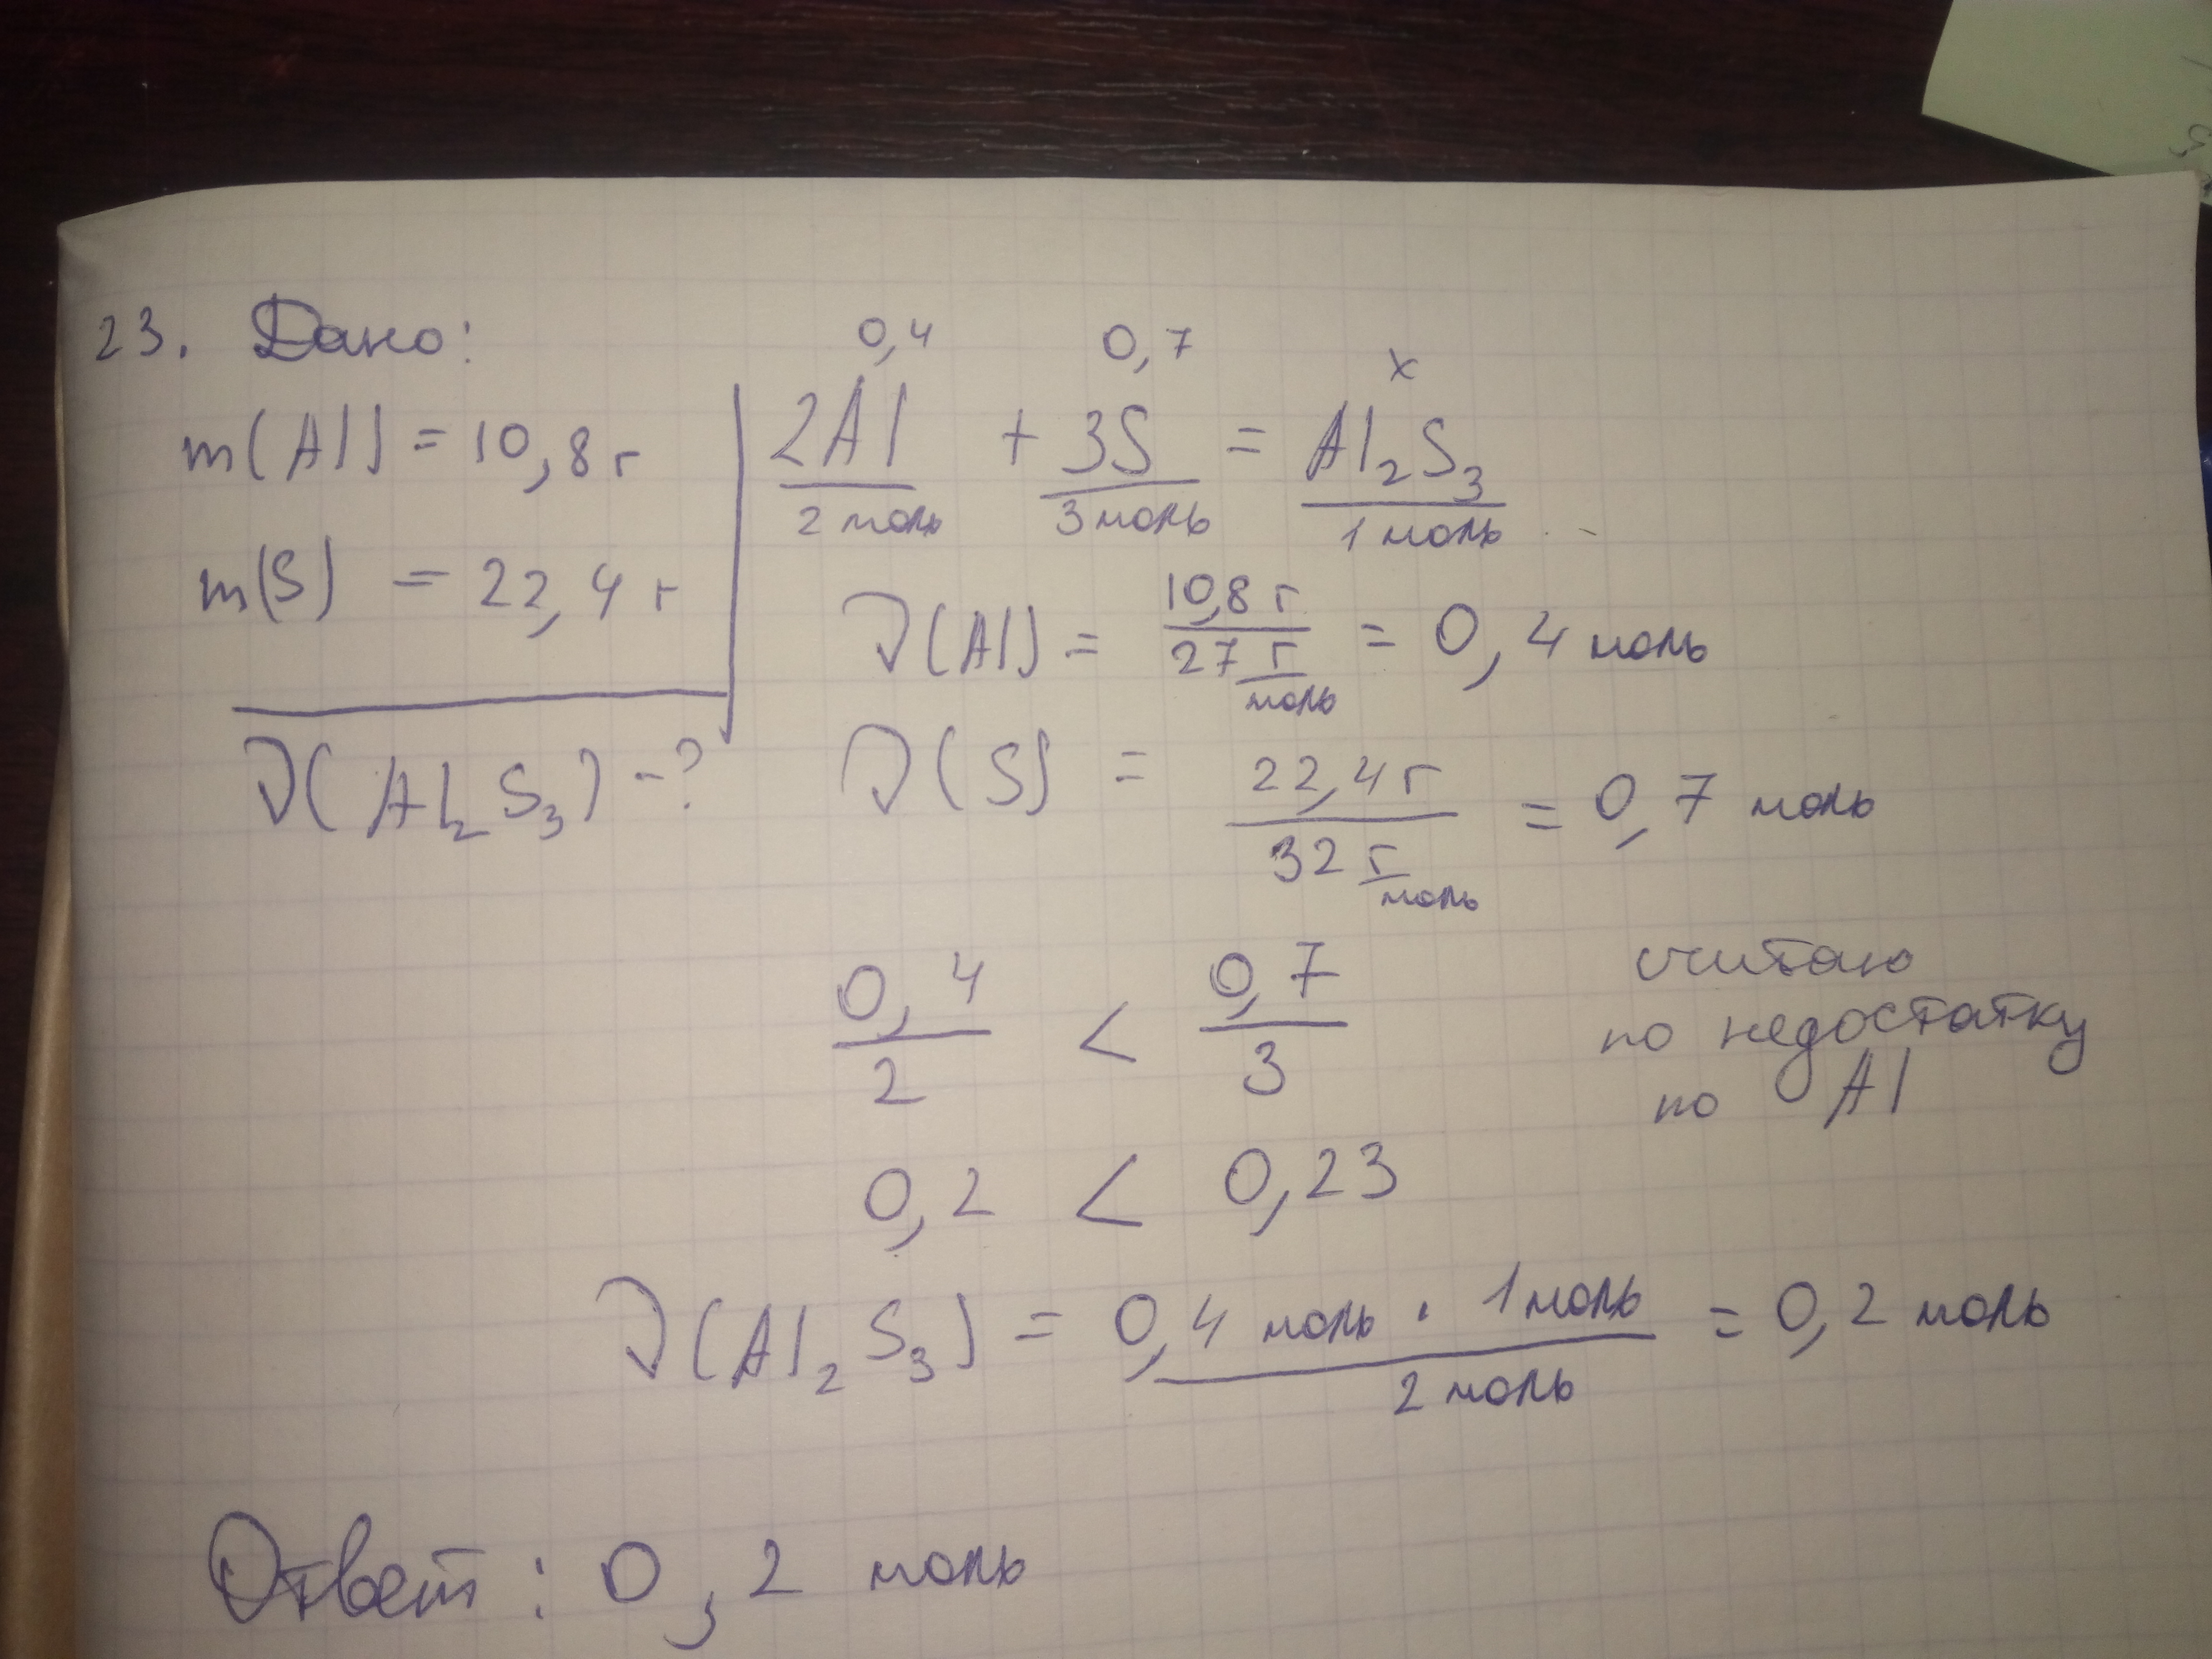 23. Дано:
m(Al) = 10,8 г
m(S) = 22,4 г
ν(Al₂S₃) - ?
0,4 0,7 x
2Al + 3S = Al₂S₃
2 моль 3 моль 1 моль
ν(Al) = 10,8 г / 27 г/моль = 0,4 моль
ν(S) = 22,4 г / 32 г/моль = 0,7 моль
0,4/2 < 0,7/3
считаю
по недостатку
по Al
0,2 < 0,23
ν(Al₂S₃) = 0,4 моль · 1 моль / 2 моль = 0,2 моль
Ответ: 0,2 моль